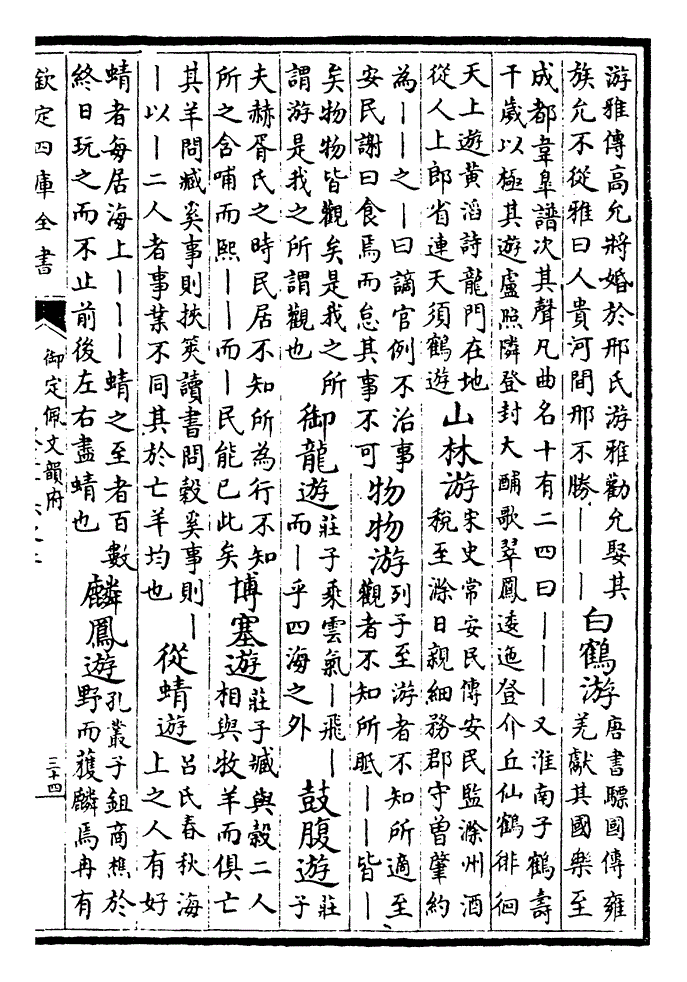 游雅傳高允將婚於邢氏游雅勸允娶其
族允不從雅曰人貴河間邢不勝｜｜｜
白鶴游
唐書驃國傳雍
羌獻其國樂至
成都韋臯譜次其聲凡曲名十有二四曰｜｜｜又淮南子鶴壽
千歲以極其遊盧照隣登封大酺歌翠鳳逶迤登介丘仙鶴徘徊
天上遊黃滔詩龍門在地
從人上郎省連天須鶴遊
山林游
宋史常安民傳安民監滁州酒
稅至滁日親細務郡守曾肇約
為｜｜之｜曰謫官例不治事
安民謝曰食焉而怠其事不可
物物游
列子至游者不知所適至
觀者不知所眂｜｜皆｜
矣物物皆觀矣是我之所
謂游是我之所謂觀也
御龍遊
莊子乘雲氣｜飛｜
而｜乎四海之外
鼓腹遊
莊
子
夫赫胥氏之時民居不知所為行不知
所之含哺而熙｜｜而｜民能已此矣
博塞遊
莊子臧與穀二人
相與牧羊而俱亡
其羊問臧奚事則挾筴讀書問穀奚事則｜
｜以｜二人者事業不同其於亡羊均也
從蜻遊
呂氏春秋海
上之人有好
蜻者每居海上｜｜｜蜻之至者百數
終日玩之而不止前後左右盡蜻也
麟鳳遊
孔叢子鉏商樵於
野而獲麟焉冉有
欽定四庫全書
御定佩文韻府
三十四